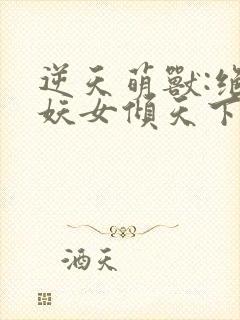 逆天萌獸:绝
妖女傾天下
酒天